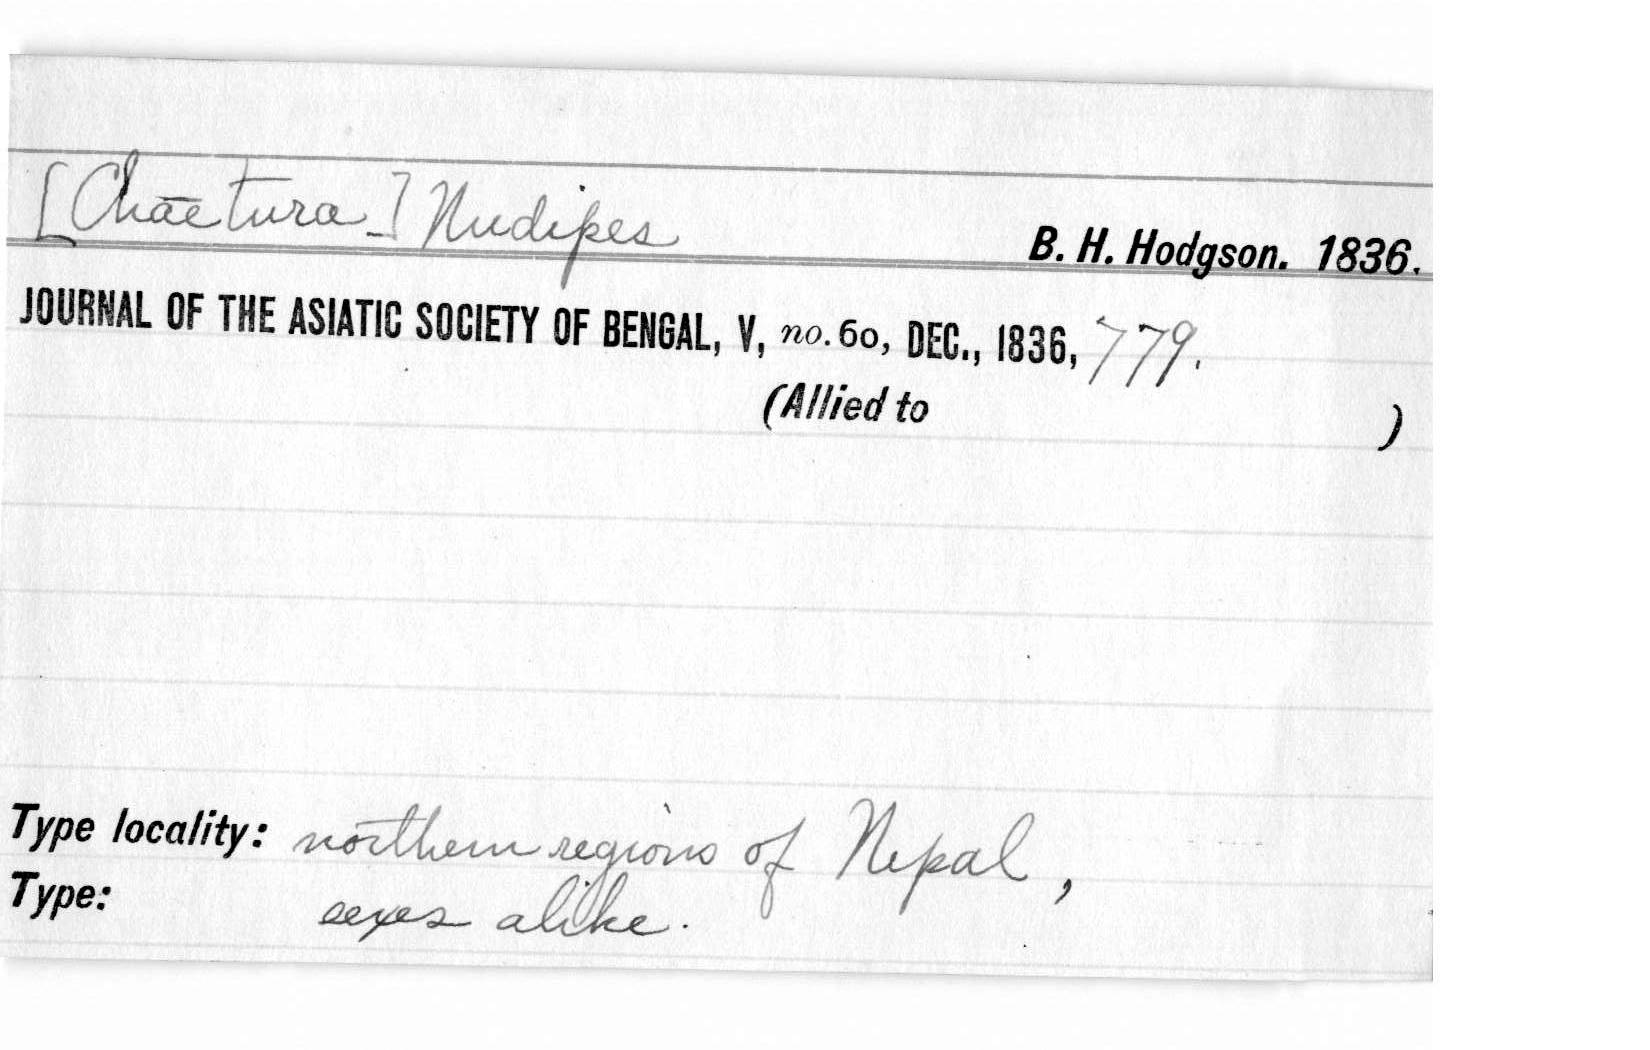 [Chaetura] Nudipes
B. H. Hodgson. 1836.
JOURNAL OF THE ASIATIC SOCIETY OF BENGAL, V, no. 60, DEC., 1836, 779.
(Allied to )
Type locality: northern regions of Nepal,
Type: sexes alike.